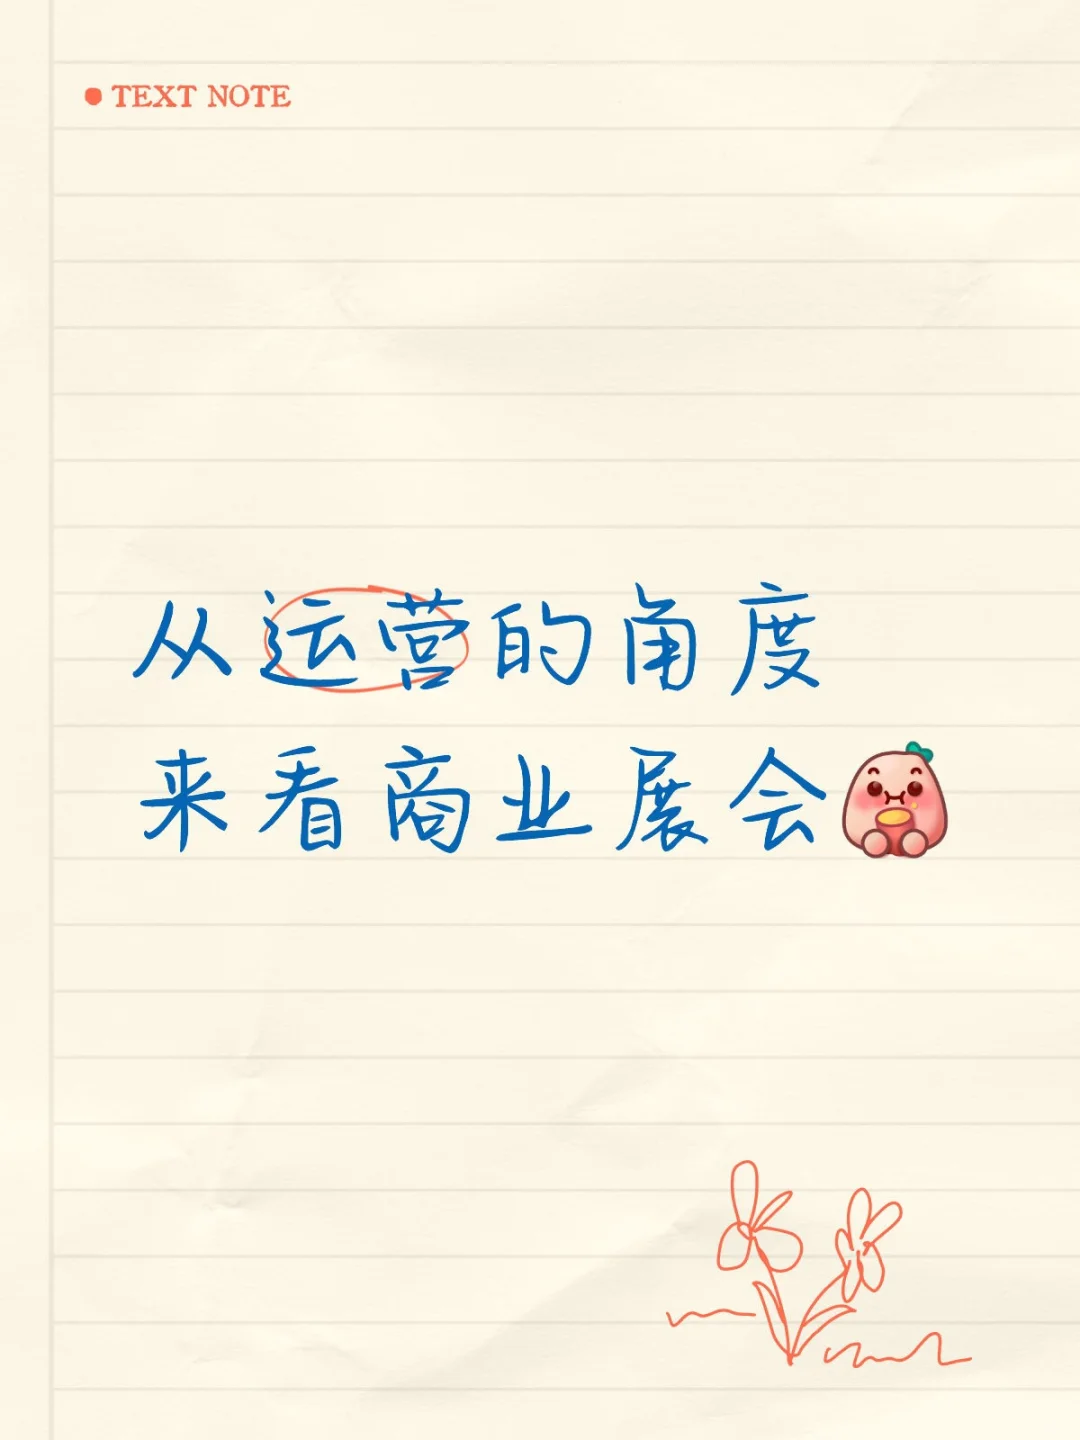 TEXT NOTE
从运营的角度
来看商业展会